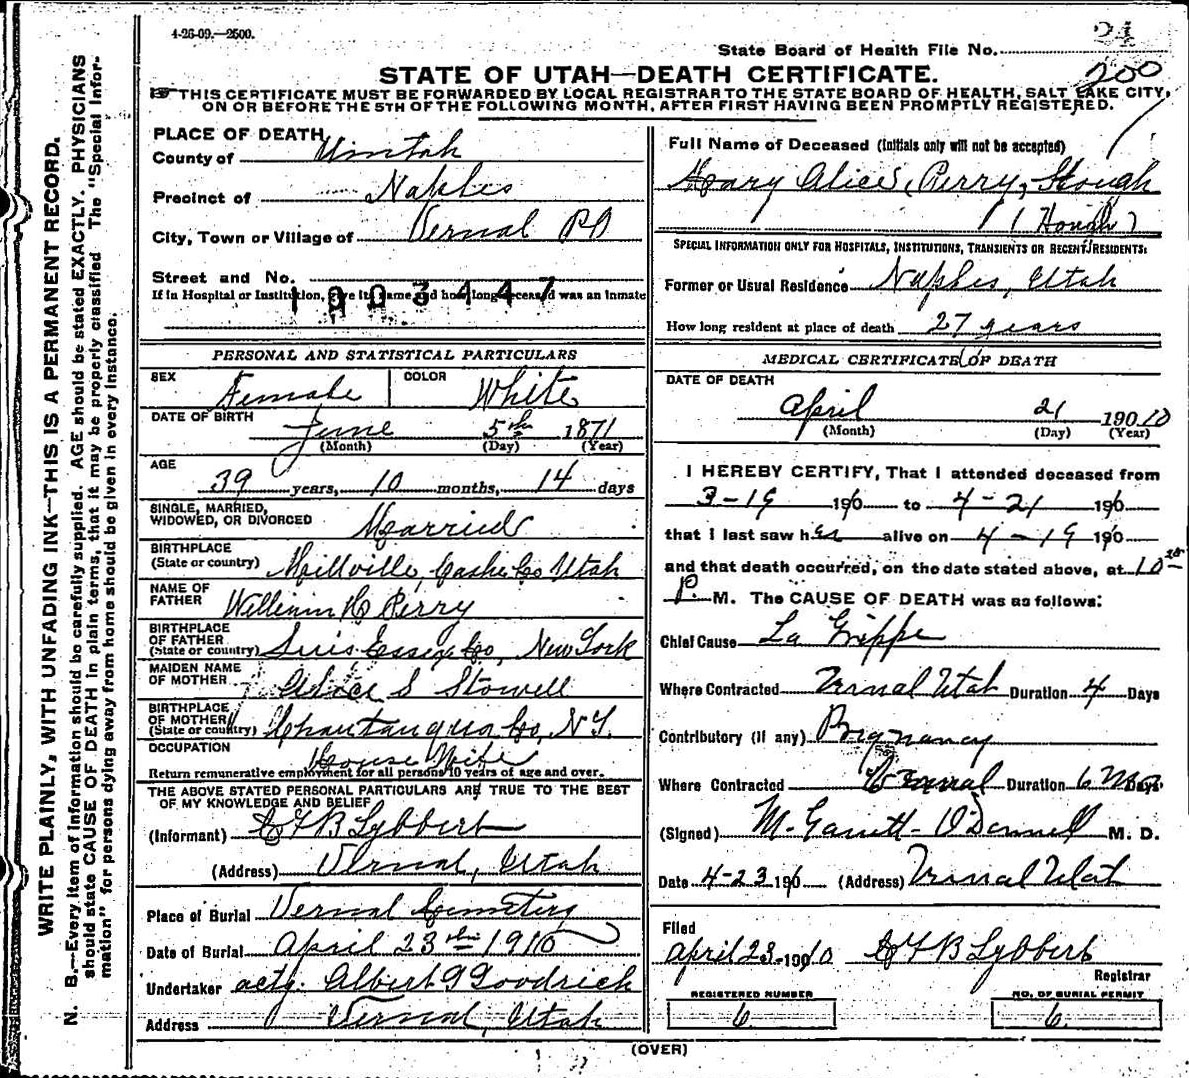 4-26-09.—2500.
State Board of Health File No. 24
STATE OF UTAH—DEATH CERTIFICATE.
200
THIS CERTIFICATE MUST BE FORWARDED BY LOCAL REGISTRAR TO THE STATE BOARD OF HEALTH, SALT LAKE CITY,
ON OR BEFORE THE 5TH OF THE FOLLOWING MONTH, AFTER FIRST HAVING BEEN PROMPTLY REGISTERED.
WRITE PLAINLY, WITH UNFADING INK—THIS IS A PERMANENT RECORD.
N. B.—Every item of information should be carefully supplied. AGE should be stated EXACTLY. PHYSICIANS
should state CAUSE OF DEATH in plain terms, that it may be properly classified. The "Special Infor-
mation" for persons dying away from home should be given in every instance.
PLACE OF DEATH
County of Uintah
Precinct of Naples
City, Town or Village of Vernal PO
Street and No.
If in Hospital or Institution, give its name and how long deceased was an inmate
1003447
PERSONAL AND STATISTICAL PARTICULARS
SEX Female COLOR White
DATE OF BIRTH June 5th 1871
(Month) (Day) (Year)
AGE
39 years, 10 months, 14 days
SINGLE, MARRIED,
WIDOWED, OR DIVORCED Married
BIRTHPLACE
(State or country) Millville, Cashe Co Utah
NAME OF
FATHER William H Perry
BIRTHPLACE
OF FATHER
(State or country) Essex Co, New York
MAIDEN NAME
OF MOTHER S Stowell
BIRTHPLACE
OF MOTHER
(State or country) Chautauqua Co, N.Y.
OCCUPATION House Wife
Return remunerative employment for all persons 10 years of age and over.
THE ABOVE STATED PERSONAL PARTICULARS ARE TRUE TO THE BEST
OF MY KNOWLEDGE AND BELIEF
(Informant) F B Lybbert
(Address) Vernal, Utah
Place of Burial Vernal Cemetery
Date of Burial April 23th 1910
Undertaker actg. Albert G Goodrich
Address Vernal, Utah
Full Name of Deceased (Initials only will not be accepted)
Mary Alice, Perry, Hough
(Hough)
SPECIAL INFORMATION ONLY FOR HOSPITALS, INSTITUTIONS, TRANSIENTS OR RECENT RESIDENTS:
Former or Usual Residence Naples, Utah
How long resident at place of death 27 years
MEDICAL CERTIFICATE OF DEATH
DATE OF DEATH
April 21 190 10
(Month) (Day) (Year)
I HEREBY CERTIFY, That I attended deceased from
3-19 190 to 4-21 190
that I last saw her alive on 4-19 190
and that death occurred, on the date stated above, at 10
P. M. The CAUSE OF DEATH was as follows:
Chief Cause La Grippe
Where Contracted Vernal Utah Duration 4 Days
Contributory (if any) Pregnancy
Where Contracted Vernal Duration 6 Mos Days
(Signed) M. Garrett O'Donnell M. D.
Date 4-23 190 (Address) Vernal Utah
Filed
April 23-190 10 F B Lybbert
Registrar
REGISTERED NUMBER
6
NO. OF BURIAL PERMIT
6.
(OVER)